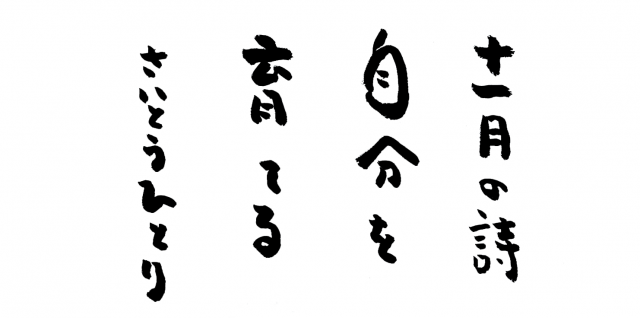 十一月の詩
自分を
育てる
さいとうひとり